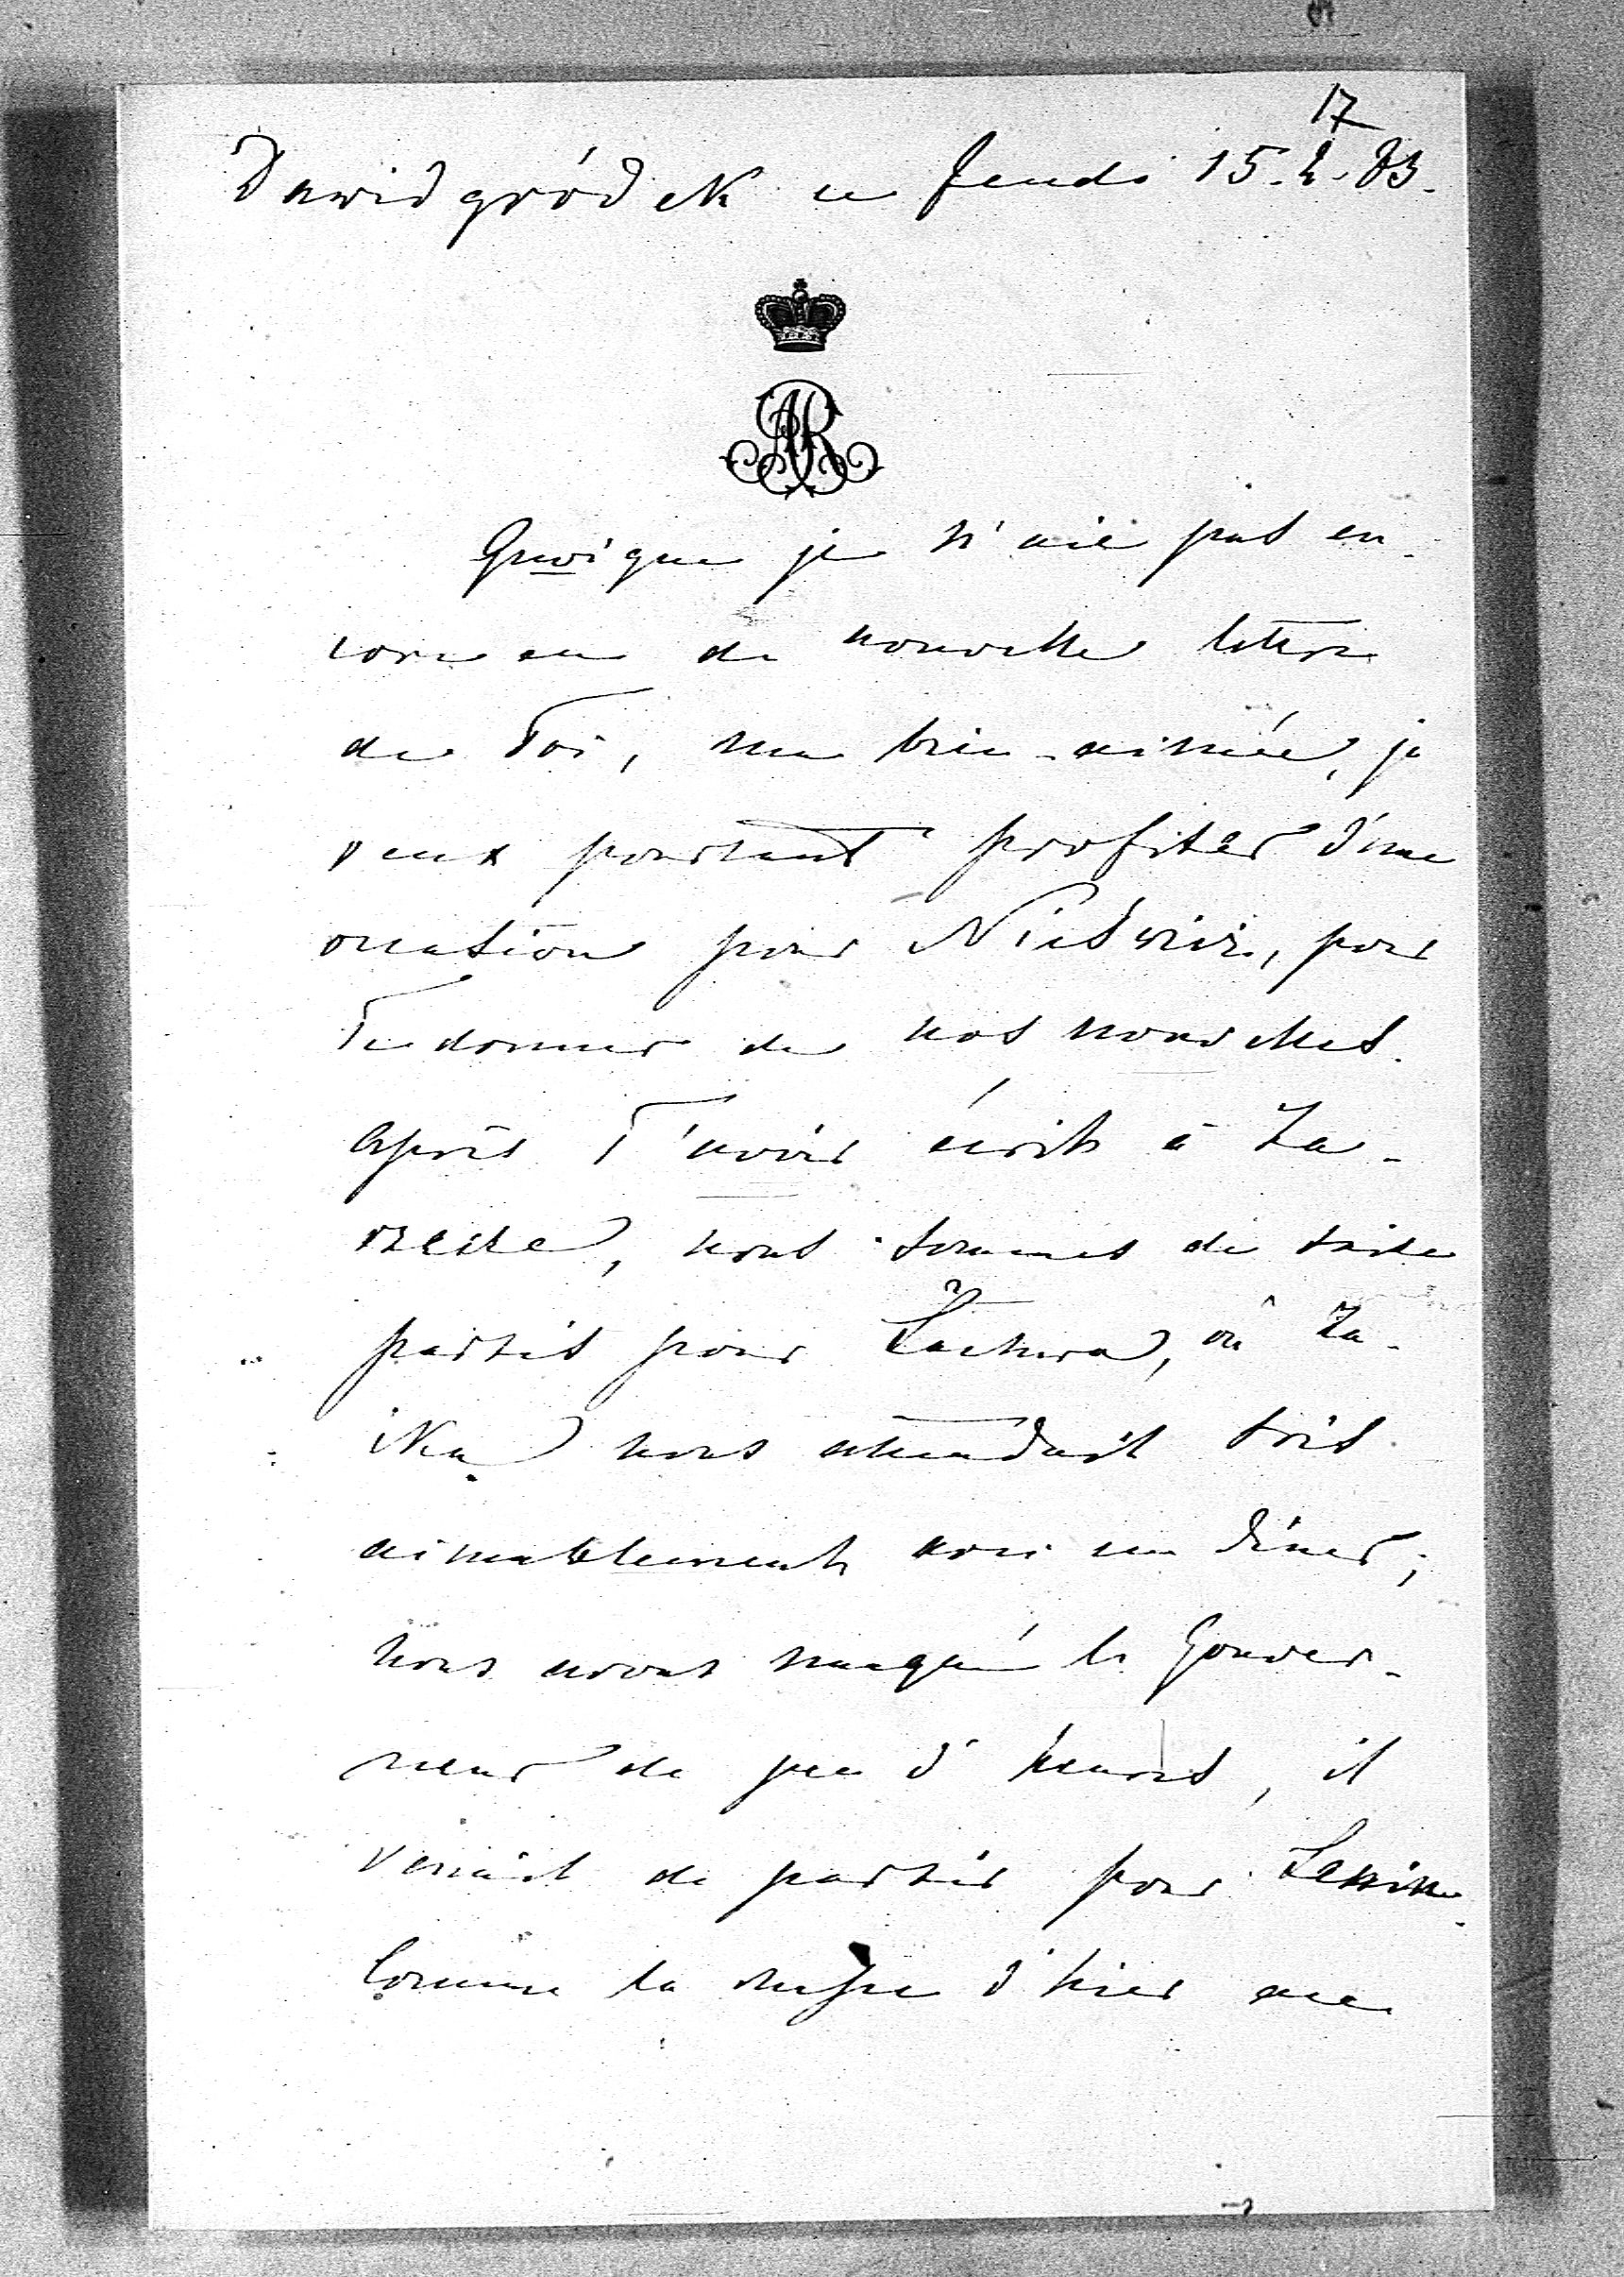 17
Dawidgródek ce Jeudi 15. 2. 83.
AR
Quoique je n'aie pas en-
core eu de nouvelle lettre
de Toi, ma bien-aimée, je
veux pourtant profiter d'une
occasion pour Nieśwież, pour
Te donner de nos nouvelles.
Après T'avoir écrit à Za-
rzecze, nous sommes de suite
partis pour Łachwa, où
nous attendait très
aimablement avec un dîner;
nous avons manqué le Gouver-
neur de peu d'heures, il
venait de partir pour Lenin.
Comme la d'hier